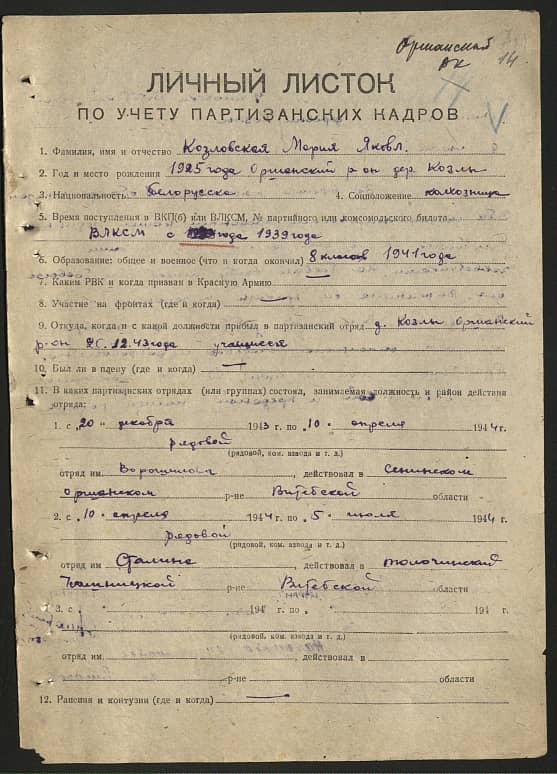 Оршанский
РК 14
ЛИЧНЫЙ ЛИСТОК
ПО УЧЕТУ ПАРТИЗАНСКИХ КАДРОВ
1. Фамилия, имя и отчество Козловская Мария Яковл.
2. Год и место рождения 1925 года Оршанский р-он дер. Козлы
3. Национальность Белорусска 4. Соположение колхозница
5. Время поступления в ВКП(б) или ВЛКСМ, № партийного или комсомольского билета
ВЛКСМ с года 1939 года
6. Образование: общее и военное (что и когда окончил) 8 классов 1941 года
7. Каким РВК и когда призван в Красную Армию —
8. Участие на фронтах (где и когда) —
9. Откуда, когда и с какой должности прибыл в партизанский отряд д. Козлы Оршанский
р-он 20.12.43 года учащиеся
10. Был ли в плену (где и когда) —
11. В каких партизанских отрядах (или группах) состоял, занимаемая должность и район действия
отряда:
1. с „20" декабря 1943 г. по „10" апреля 1944 г.
рядовой
(рядовой, ком. взвода и т. д.)
отряд им Ворошилова, действовал в Сенинском
Оршанском р-не Витебской области
2. с „10" апреля 1944 г. по „5" июля 1944 г.
рядовой
(рядовой, ком. взвода и т. д.)
отряд им Сталина, действовал в Толочинский
р-не Витебской области
3. с 194 г. по 194 г.
(рядовой, ком. взвода и т. д.)
отряд им , действовал в
р-не области
12. Ранения и контузии (где и когда) —